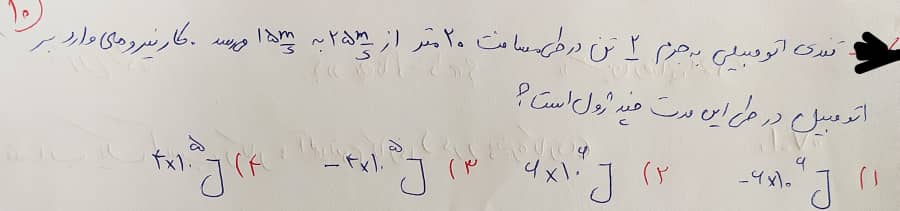 ۱۰)
تندی اتومبیلی به جرم ۲ تن در طی مسافت ۲۰ متر از ۲۵ m/s به ۱۵ m/s می‌رسد. کار نیروهای وارد بر
اتومبیل در طی این مدت چند ژول است؟
۱) -۶×۱۰^۶ J ۲) ۶×۱۰^۶ J ۳) -۴×۱۰^۵ J ۴) ۴×۱۰^۵ J